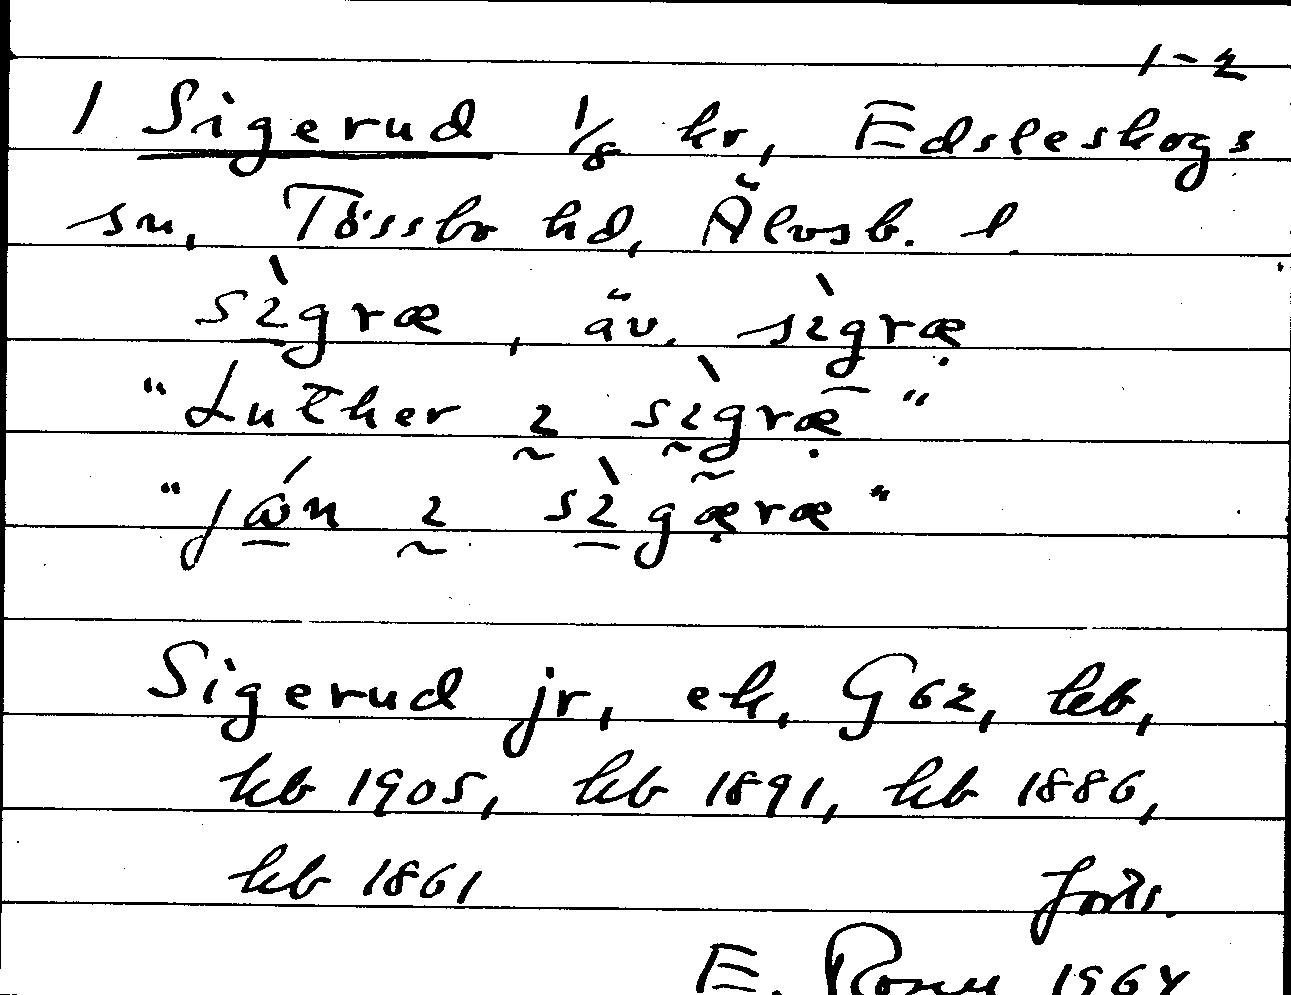 1-2
1 Sigerud 1/8 kr, Edsleskogs
sn, Tössbo hd, Älvsb. l.
sìgræ, äv. sìgræ̣
"Luther ı sìgræ̣"
"ján ı sìgæ̣ræ"
Sigerud jr, ek, G62, kb,
kb 1905, kb 1891, kb 1886,
kb 1861 forts.
E. 196